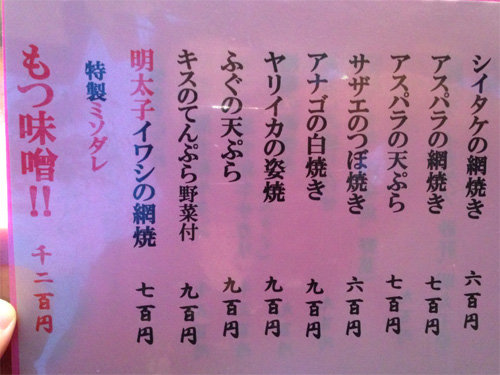 シイタケの網焼き 六百円
アスパラの網焼き 七百円
アスパラの天ぷら 七百円
サザエのつぼ焼き 六百円
アナゴの白焼き 九百円
ヤリイカの姿焼 九百円
ふぐの天ぷら 九百円
キスのてんぷら野菜付 九百円
明太子イワシの網焼 七百円
特製ミソダレ
もつ味噌!! 千二百円